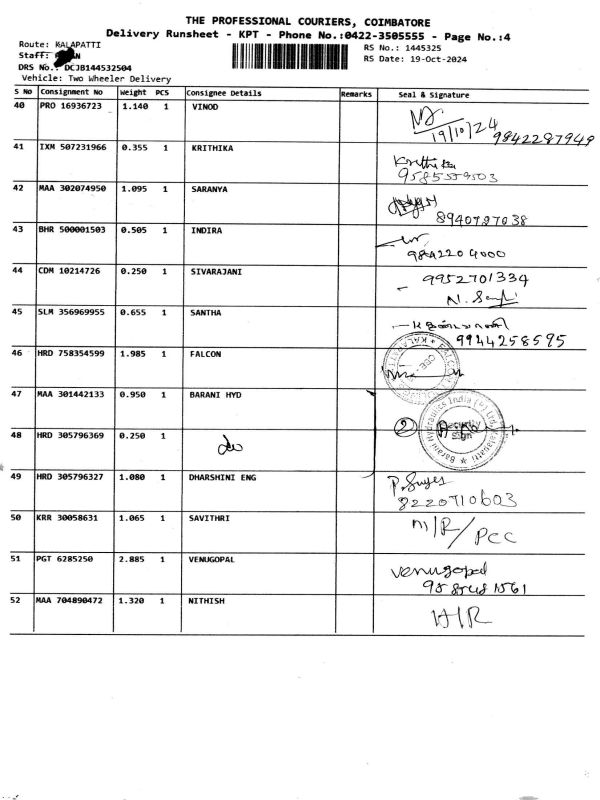 THE PROFESSIONAL COURIERS, COIMBATORE
Delivery Runsheet - KPT - Phone No.:0422-3505555 - Page No.:4
Route: KALAPATTI
RS No.: 1445325
Staff:
RS Date: 19-Oct-2024
DRS No.: DCJB144532504
Vehicle: Two Wheeler Delivery
S No Consignment No Weight PCS Consignee Details Remarks Seal & Signature
40 PRO 16936723 1.140 1 VINOD
19/10/24 9842287949
41 IXM 507231966 0.355 1 KRITHIKA
Krithika
9585559503
42 MAA 302074950 1.095 1 SARANYA
8940727038
43 BHR 500001503 0.505 1 INDIRA
9842204000
44 CDM 10214726 0.250 1 SIVARAJANI
9952701334
45 SLM 356969955 0.655 1 SANTHA
9944258595
46 HRD 758354599 1.985 1 FALCON
47 MAA 301442133 0.950 1 BARANI HYD
Barani Hydraulics India (P) Ltd, Kalapatti
Security
Sign
2
48 HRD 305796369 0.250 1
do
49 HRD 305796327 1.080 1 DHARSHINI ENG
8220710603
50 KRR 30058631 1.065 1 SAVITHRI
M/R/PCC
51 PGT 6285250 2.885 1 VENUGOPAL
Venugopal
52 MAA 704890472 1.320 1 NITHISH
H/R